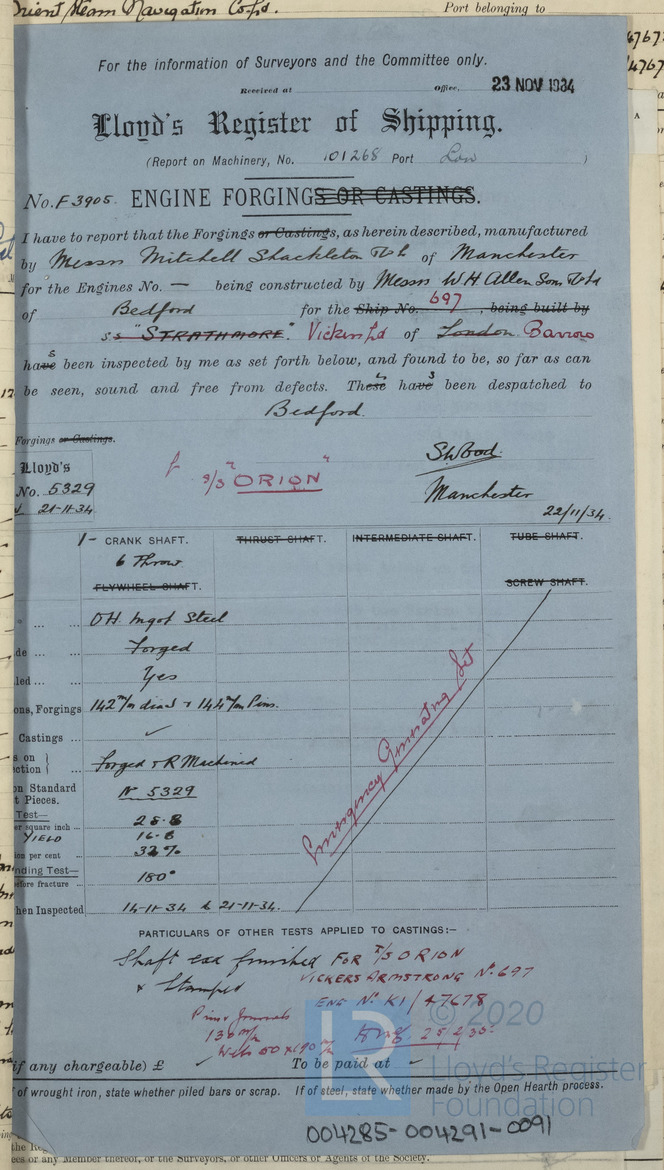 Orient Steam Navigation Co. Ld. Port belonging to
For the information of Surveyors and the Committee only.
Received at Office, 23 NOV 1934
Lloyd's Register of Shipping.
(Report on Machinery, No. 101268 Port Lon )
No. F 3905. ENGINE FORGINGS OR CASTINGS.
I have to report that the Forgings or Castings, as herein described, manufactured
by Messrs Mitchell Shackleton & Co of Manchester
for the Engines No. — being constructed by Messrs W H Allen Sons & Co Ld
of Bedford for the Ship No. 697, being built by
S.S "STRATHMORE". Vickers Ld of London Barrow
have s been inspected by me as set forth below, and found to be, so far as can
be seen, sound and free from defects. These have s been despatched to
Bedford.
Forgings or Castings.
Lloyd's
No. 5329
21-11-34
S/S "ORION"
Manchester
22/11/34.
1- CRANK SHAFT. THRUST SHAFT. INTERMEDIATE SHAFT. TUBE SHAFT.
6 Throw
FLYWHEEL SHAFT. SCREW SHAFT.
O.H. Ingot Steel
Forged
Yes
ons, Forgings 142 m/m dia & 144 m/m Pins.
Castings ... ✓
s on
ction Forged & R Machined
on Standard
t Pieces. No 5329
Test— 28.8
er square inch ...
YIELD 16.8
ion per cent ... 32%
nding Test— 180°
efore fracture ...
hen Inspected 14-11-34 & 21-11-34.
Emergency Generating Set
PARTICULARS OF OTHER TESTS APPLIED TO CASTINGS:-
Shaft exd finished FOR T/S ORION
& Stamped VICKERS ARMSTRONG No. 697
ENG No K1/47678
Pins & Journals
130 m/m
Webs 50 x 190 m/m
if any chargeable) £ To be paid at
of wrought iron, state whether piled bars or scrap. If of steel, state whether made by the Open Hearth process.
© 2020
Lloyd's Register
Foundation
LR
004285-004291-0091
ees or any Member thereof, or the Surveyors, or other Officers or Agents of the Society.